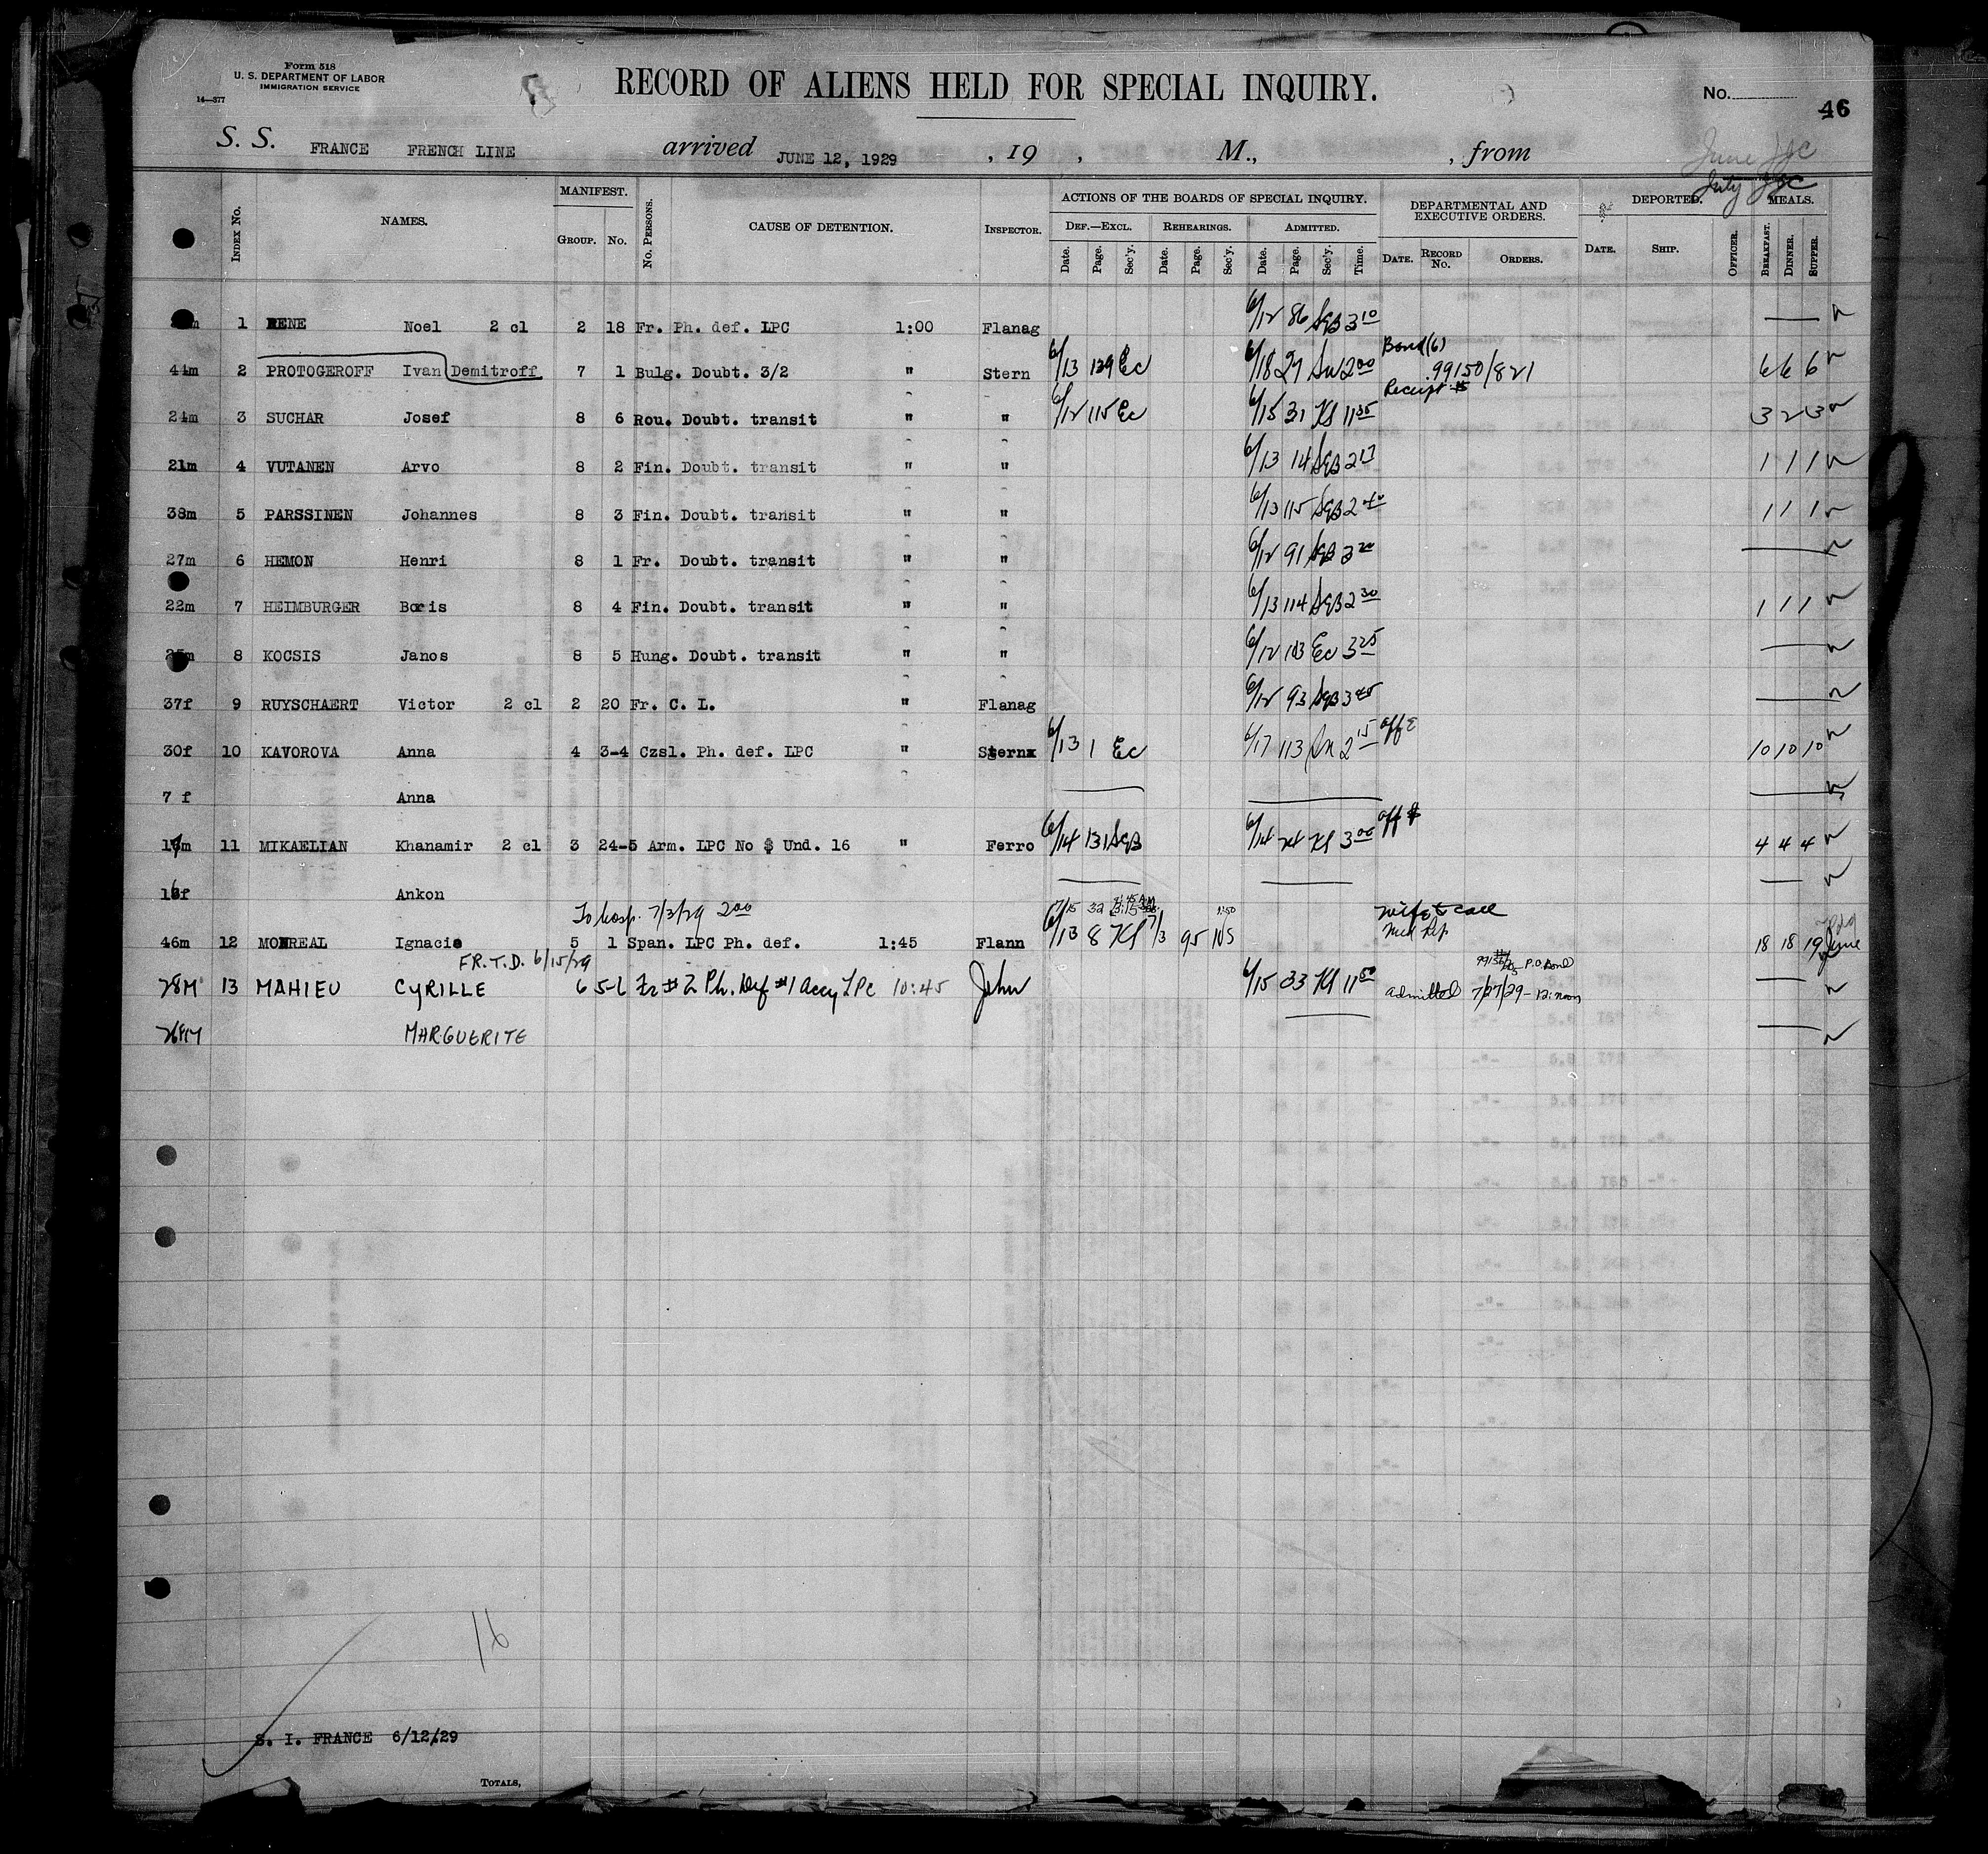 Form 518
U. S. DEPARTMENT OF LABOR
IMMIGRATION SERVICE
14—377
RECORD OF ALIENS HELD FOR SPECIAL INQUIRY.
No.
46
S. S. FRANCE FRENCH LINE arrived JUNE 12, 1929 , 19 , M., , from
June JJC
July JJC
INDEX No. NAMES. MANIFEST. GROUP. No. No. PERSONS. CAUSE OF DETENTION. INSPECTOR. ACTIONS OF THE BOARDS OF SPECIAL INQUIRY. DEF.—EXCL. Date. Page. Sec'y. REHEARINGS. Date. Page. Sec'y. ADMITTED. Date. Page. Sec'y. Time. DEPARTMENTAL AND EXECUTIVE ORDERS. DATE. RECORD No. ORDERS. DEPORTED. DATE. SHIP. OFFICER. MEALS. BREAKFAST. DINNER. SUPPER.
1 RENE Noel 2 cl 2 18 Fr. Ph. def. LPC 1:00 Flanag 6/12 86 SgB 3 10
44m 2 PROTOGEROFF Ivan Demitroff 7 1 Bulg. Doubt. 3/2 " Stern 6/13 139 Ec 6/18 27 2 00 Bond (6) 99150/821 Receipt 6 6 6
24m 3 SUCHAR Josef 8 6 Rou. Doubt. transit " " 6/12 115 Ec 6/15 31 Kl 11 35 3 2 3
21m 4 VUTANEN Arvo 8 2 Fin. Doubt. transit " " 6/13 14 SgB 2 17 1 1 1
38m 5 PARSSINEN Johannes 8 3 Fin. Doubt. transit " " 6/13 115 SgB 2 40 1 1 1
27m 6 HEMON Henri 8 1 Fr. Doubt. transit " " 6/12 91 SgB 3 20
22m 7 HEIMBURGER Boris 8 4 Fin. Doubt. transit " " 6/13 114 SgB 2 30 1 1 1
8 KOCSIS Janos 8 5 Hung. Doubt. transit " " 6/12 103 Ec 3 25
37f 9 RUYSCHAERT Victor 2 cl 2 20 Fr. C. L. " Flanag 6/12 93 SgB 3 45
30f 10 KAVOROVA Anna 4 3-4 Czsl. Ph. def. LPC " Stern 6/13 1 Ec 6/17 113 2 15 10 10 10
7 f Anna
11 MIKAELIAN Khanamir 2 cl 3 24-5 Arm. LPC No $ Und. 16 " Ferro 6/14 131 SgB 6/14 24 Kl 3 00 4 4 4
Ankon
To hosp. 7/3/29 2 00
46m 12 MONREAL Ignacio 5 1 Span. LPC Ph. def. 1:45 Flann 6/13 8 Kl 7/3 95 NS 18 18 19 June
FR. T. D. 6/15/29
28M 13 MAHIEU CYRILLE 6 5-6 Fr #2 Ph. Def #1 Accy LPC 10:45 John 6/15 33 Kl 11 50 admitted 7/27/29 - 12: noon
MARGUERITE
16
S. I. FRANCE 6/12/29
TOTALS,